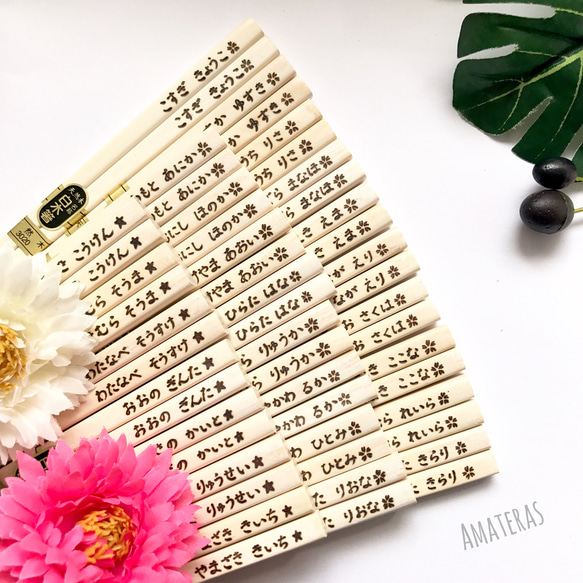 こすぎ きょうこ
こすぎ きょうこ
か ゆずき
か ゆずき
うち りさ
うち りさ
もと あにか
もと あにか
にし ほのか
にし ほのか
やま あおい
やま あおい
ひらた はな
ひらた はな
りゅうか
りゅうか
かわ るか
かわ るか
ひとみ
ひとみ
た りおな
た りおな
ら まなほ
ら まなほ
えま
えま
が えり
なが えり
お さくは
お さくは
ここな
ここな
れいら
れいら
こ きらり
こ きらり
さ こうけん
こうけん
むら そうま
むら そうま
わたなべ そうすけ
わたなべ そうすけ
おおの ぎんた
おおの ぎんた
の かいと
かいと
りゅうせい
りゅうせい
きいち
やまざき きいち
白木箸
3020
AMATERAS